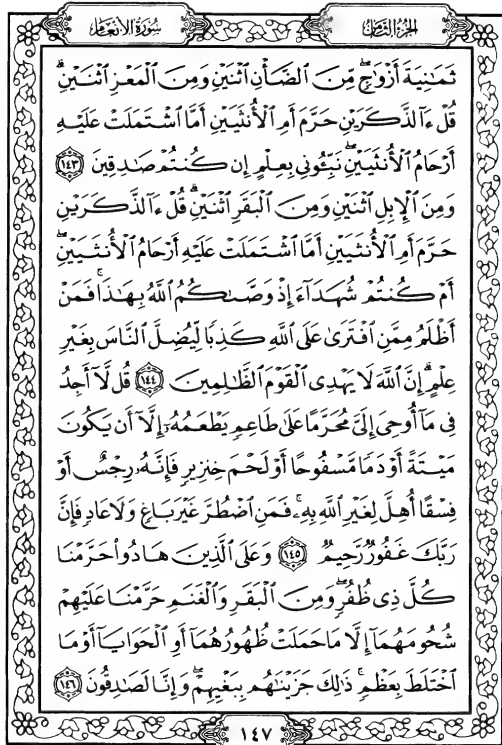 سُورَةُ الأَنْعَامِ
الجُزْءُ الثَّامِنُ
ثَمَٰنِيَةَ أَزْوَٰجٍۖ مِّنَ ٱلضَّأْنِ ٱثْنَيْنِ وَمِنَ ٱلْمَعْزِ ٱثْنَيْنِۗ
قُلْ ءَآلذَّكَرَيْنِ حَرَّمَ أَمِ ٱلْأُنثَيَيْنِ أَمَّا ٱشْتَمَلَتْ عَلَيْهِ
أَرْحَامُ ٱلْأُنثَيَيْنِۖ نَبِّـُٔونِى بِعِلْمٍ إِن كُنتُمْ صَٰدِقِينَ ١٤٣
وَمِنَ ٱلْإِبِلِ ٱثْنَيْنِ وَمِنَ ٱلْبَقَرِ ٱثْنَيْنِۗ قُلْ ءَآلذَّكَرَيْنِ
حَرَّمَ أَمِ ٱلْأُنثَيَيْنِ أَمَّا ٱشْتَمَلَتْ عَلَيْهِ أَرْحَامُ ٱلْأُنثَيَيْنِۖ
أَمْ كُنتُمْ شُهَدَآءَ إِذْ وَصَّىٰكُمُ ٱللَّهُ بِهَٰذَاۚ فَمَنْ
أَظْلَمُ مِمَّنِ ٱفْتَرَىٰ عَلَى ٱللَّهِ كَذِبًا لِّيُضِلَّ ٱلنَّاسَ بِغَيْرِ
عِلْمٍۗ إِنَّ ٱللَّهَ لَا يَهْدِى ٱلْقَوْمَ ٱلظَّٰلِمِينَ ١٤٤ قُل لَّآ أَجِدُ
فِى مَآ أُوحِىَ إِلَىَّ مُحَرَّمًا عَلَىٰ طَاعِمٍ يَطْعَمُهُۥٓ إِلَّآ أَن يَكُونَ
مَيْتَةً أَوْ دَمًا مَّسْفُوحًا أَوْ لَحْمَ خِنزِيرٍ فَإِنَّهُۥ رِجْسٌ أَوْ
فِسْقًا أُهِلَّ لِغَيْرِ ٱللَّهِ بِهِۦۚ فَمَنِ ٱضْطُرَّ غَيْرَ بَاغٍ وَلَا عَادٍ فَإِنَّ
رَبَّكَ غَفُورٌ رَّحِيمٌ ١٤٥ وَعَلَى ٱلَّذِينَ هَادُوا۟ حَرَّمْنَا
كُلَّ ذِى ظُفُرٍۖ وَمِنَ ٱلْبَقَرِ وَٱلْغَنَمِ حَرَّمْنَا عَلَيْهِمْ
شُحُومَهُمَآ إِلَّا مَا حَمَلَتْ ظُهُورُهُمَآ أَوِ ٱلْحَوَايَآ أَوْ مَا
ٱخْتَلَطَ بِعَظْمٍۚ ذَٰلِكَ جَزَيْنَٰهُم بِبَغْيِهِمْۖ وَإِنَّا لَصَٰدِقُونَ ١٤٦
١٤٧